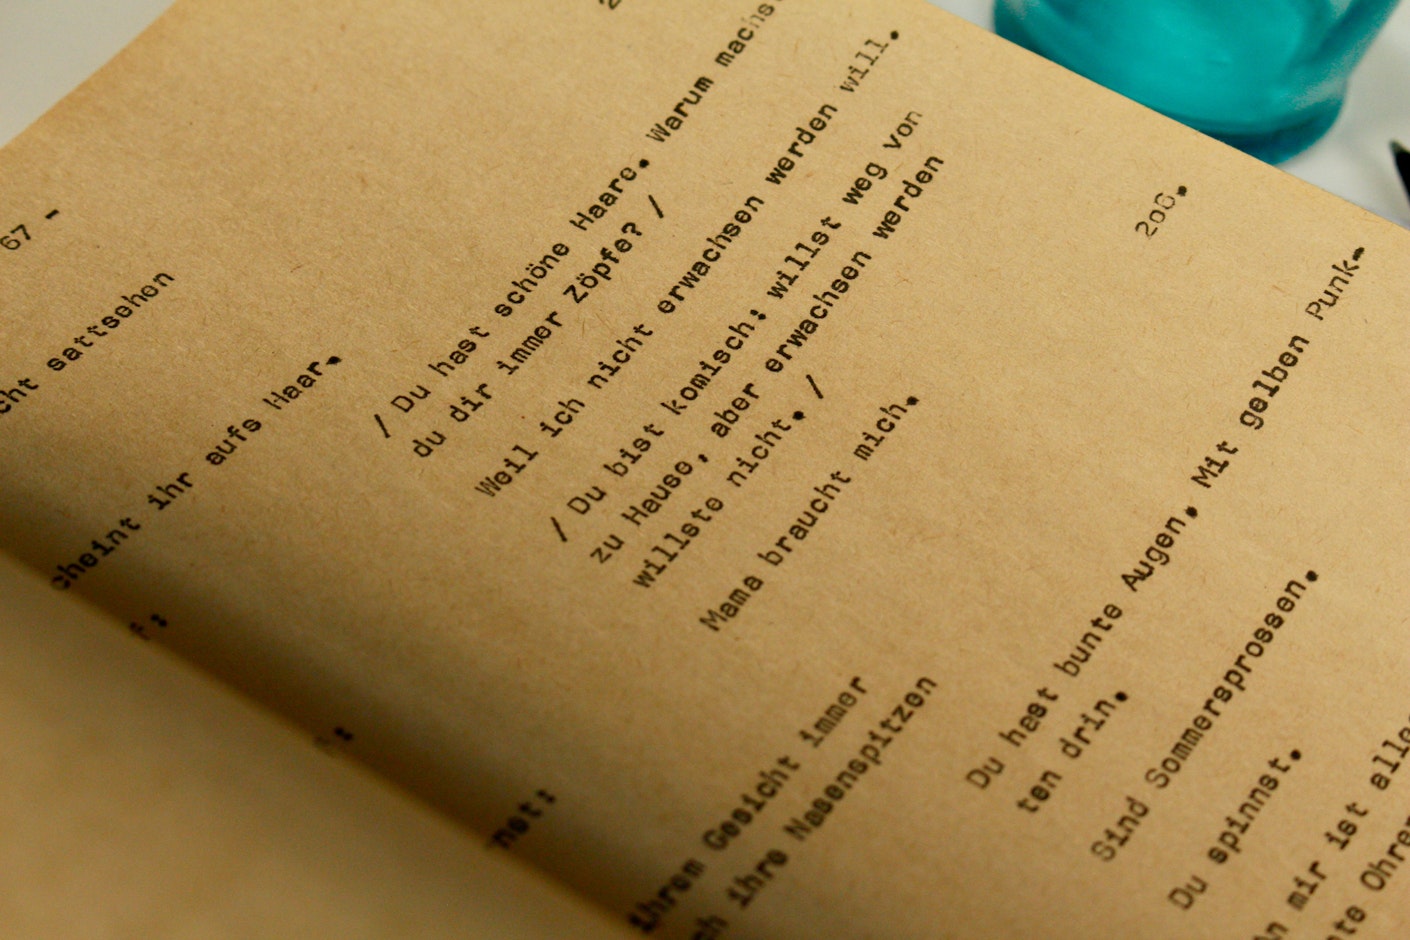 67 -
sattsehen
ihr aufs Haar.
/ Du hast schöne Haare. Warum
du dir immer Zöpfe? /
Weil ich nicht erwachsen werden will.
/ Du bist komisch: willst weg von
zu Hause, aber erwachsen werden
willste nicht. /
Mama braucht mich.
ihrem Gesicht immer
ihre Nasenspitzen
206.
Du hast bunte Augen. Mit gelben Punk-
ten drin.
Sind Sommersprossen.
Du spinnst.
mir ist